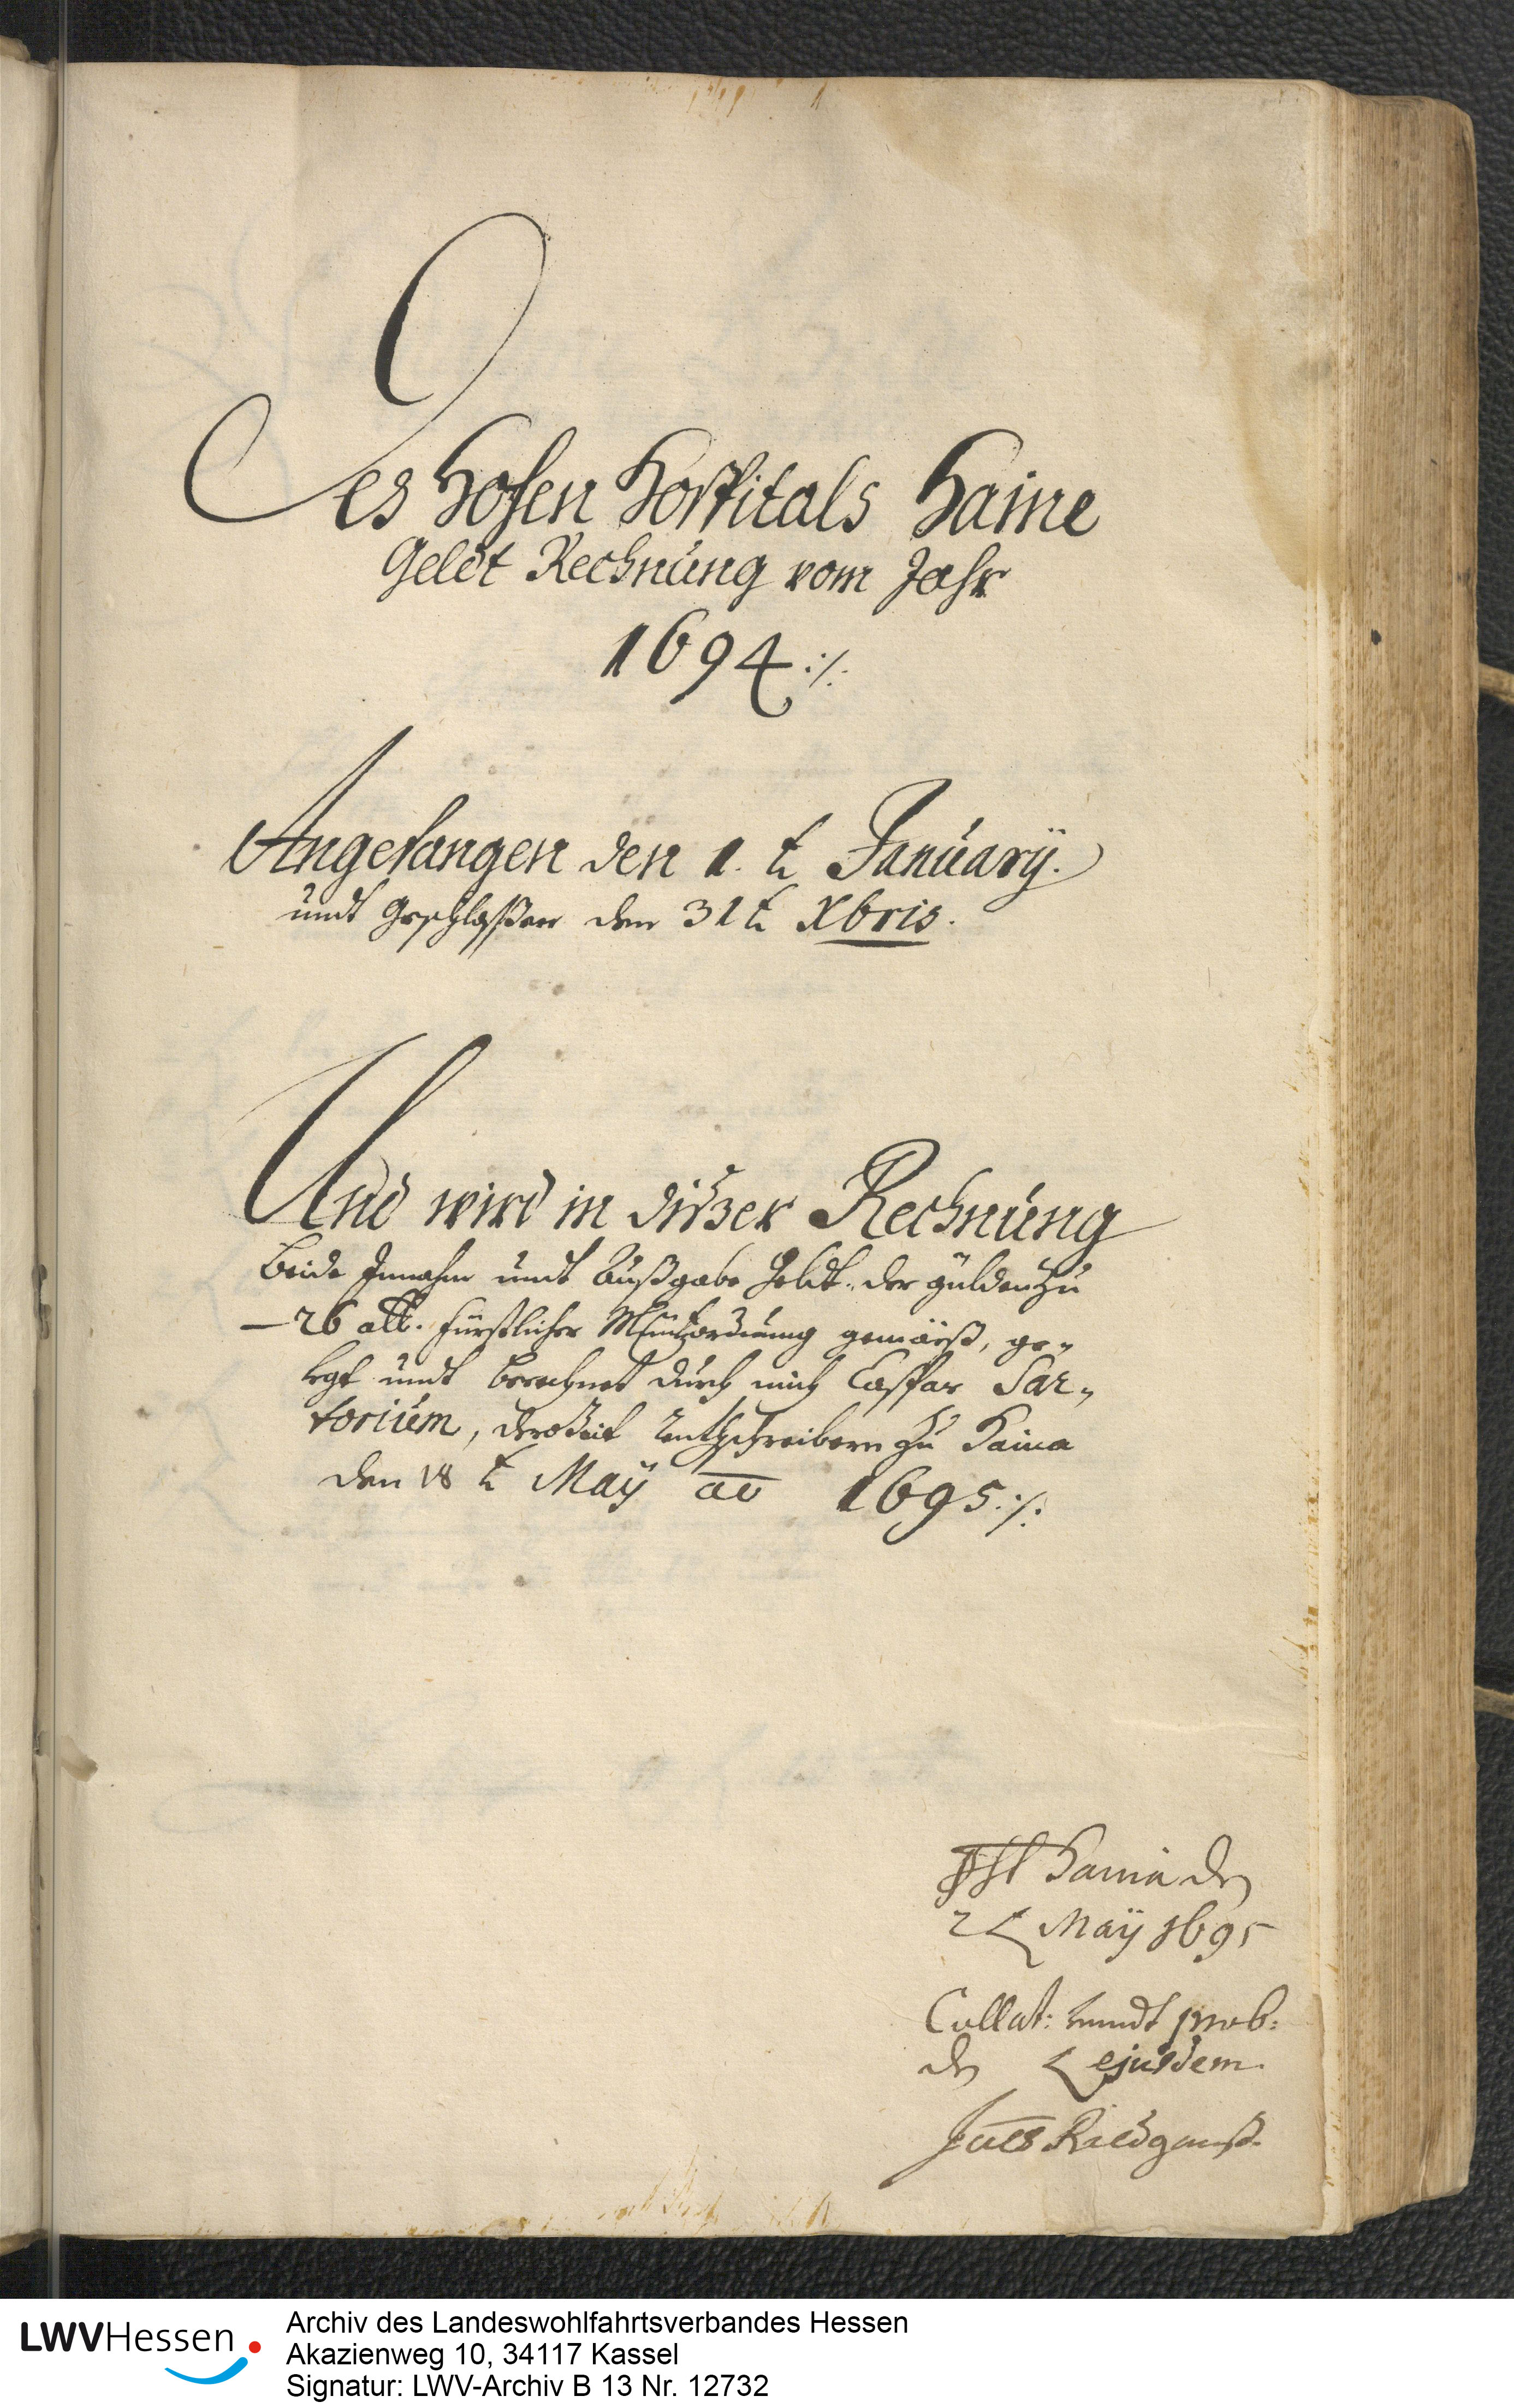 Des Hohen Hospitals Haine
Geldt Rechnung vom Jahr
1694 ./.
Angefangen den 1. t January.
undt Geschloßen den 31 t Xbris.
Und wird in dißer Rechnung
Beide Innahm undt Außgabe Geldt. der gülden zu
— 26 alb. fürstlicher Müntzordnung gemäeß, ge„
legt undt berechnet durch mich Caspar Sar„
torium, derozeit schreibern zu Haina
den 18 t May ao 1695 ./.
Haina den
2 May 1695
Collat: unndt prob:
den ejusdem.
LWVHessen
Archiv des Landeswohlfahrtsverbandes Hessen
Akazienweg 10, 34117 Kassel
Signatur: LWV-Archiv B 13 Nr. 12732